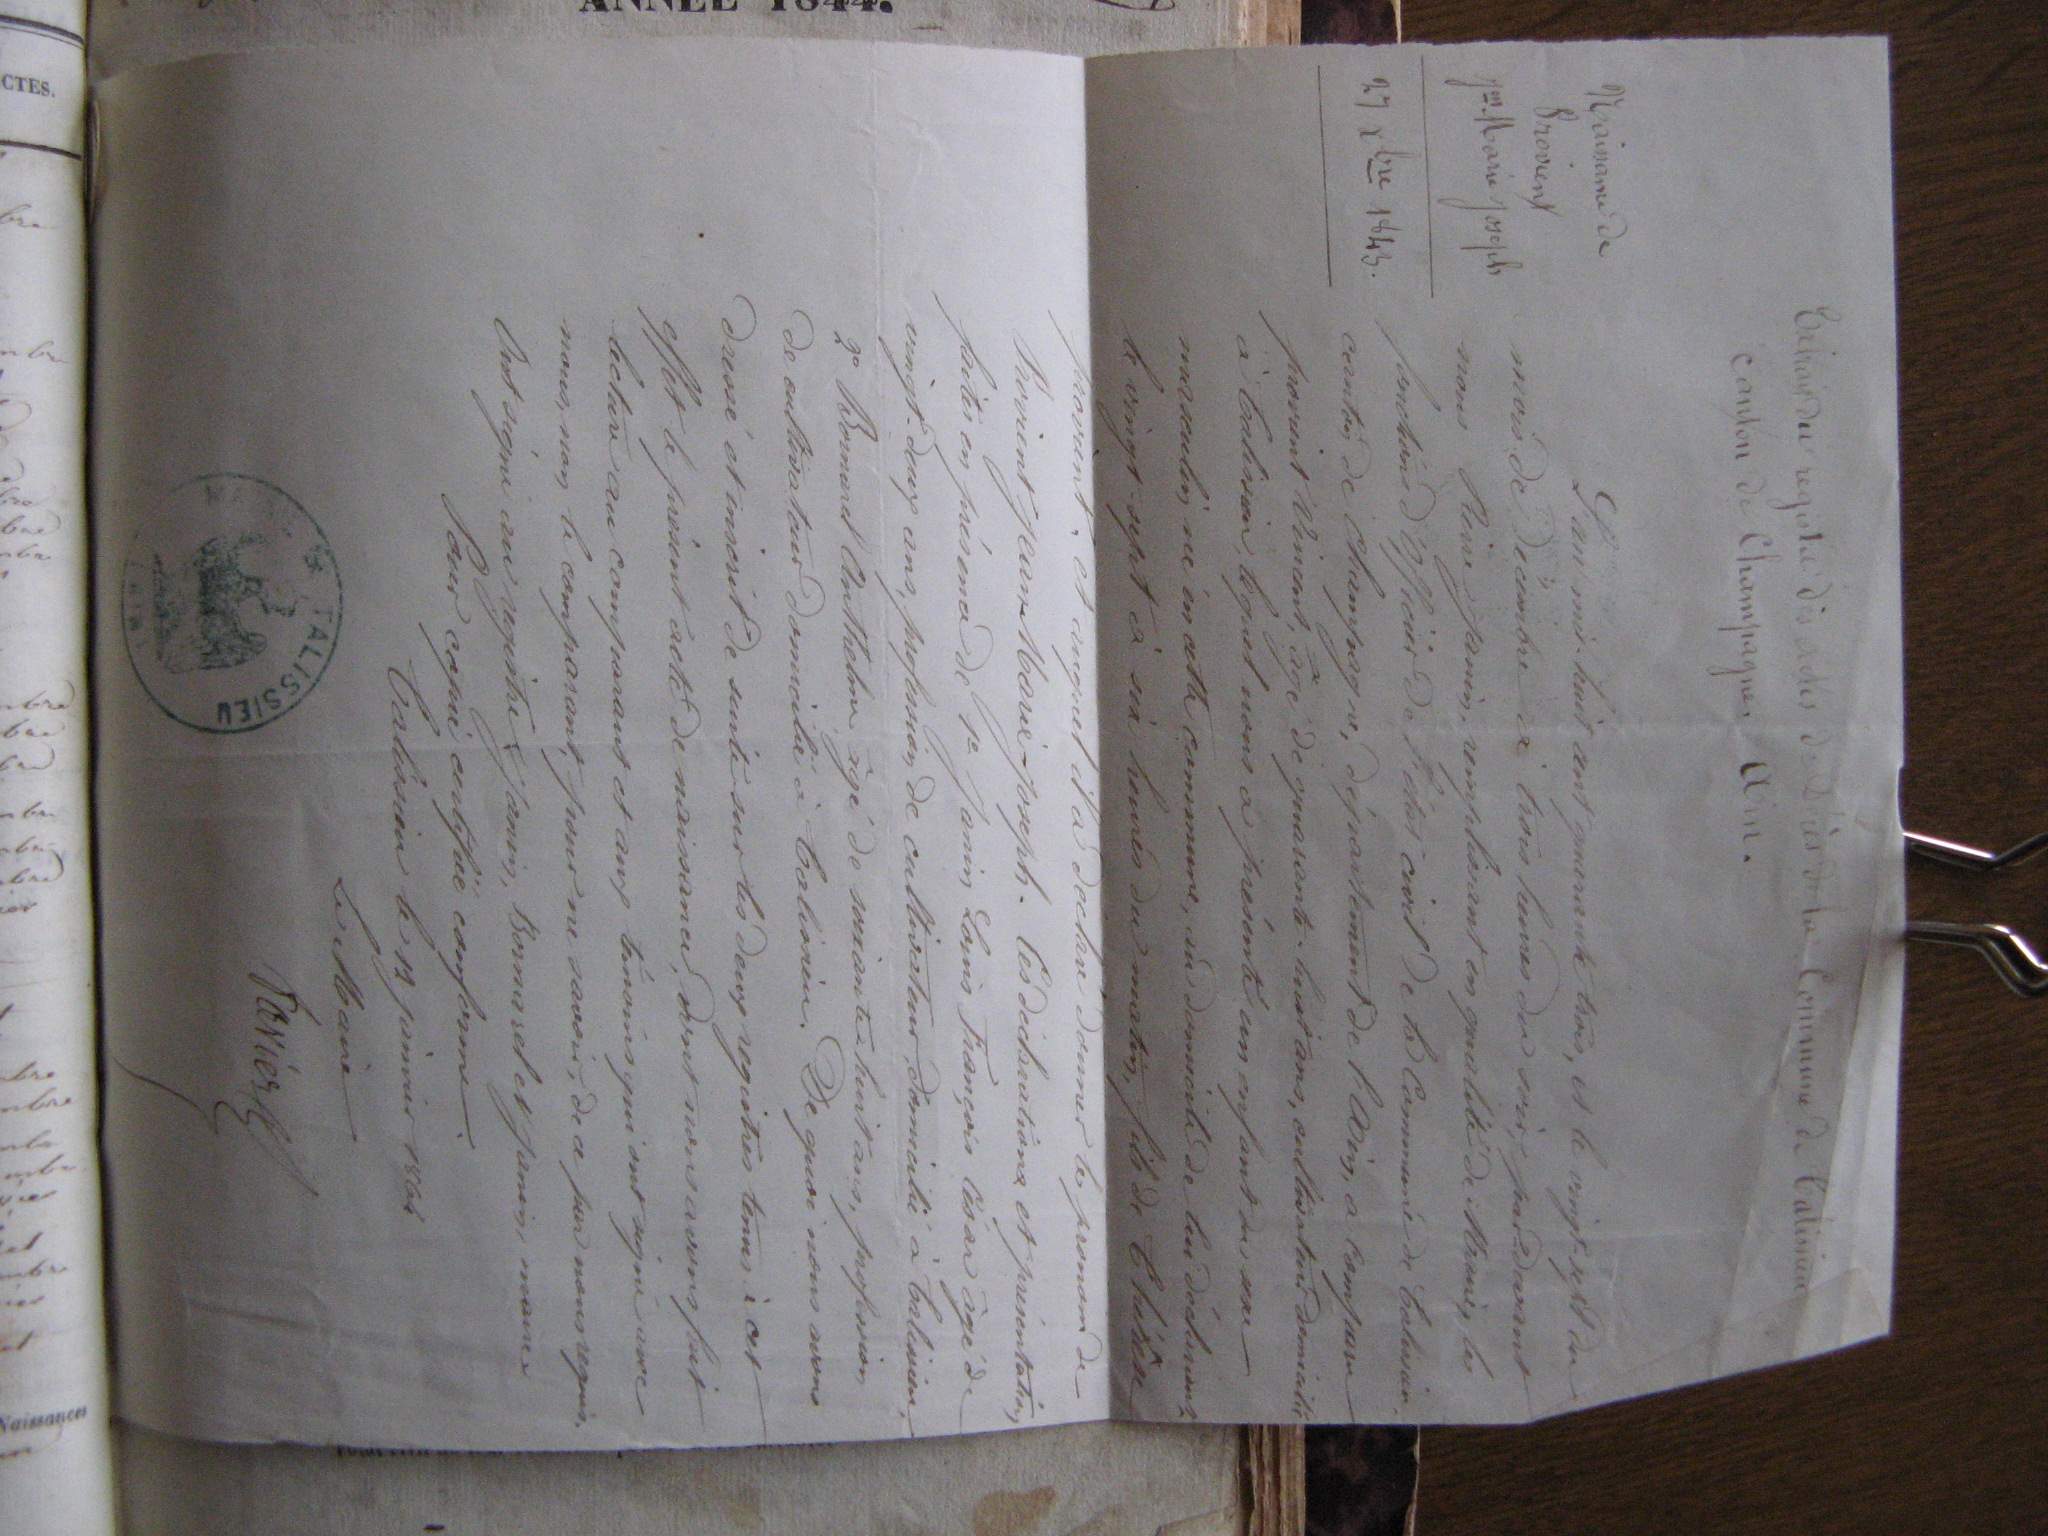 ANNÉE 1844.
CTES.
Extrait du registre des actes de l'État de la Commune de Talissieu
Canton de Champagne, Ain.
Naissance de
Provient
Jean Marie Joseph
27 Xbre 1843.
L'an mil huit cent quarante trois, et le vingt-sept du
mois de Décembre à trois heures du soir, par devant
nous Pierre Janin, remplissant en qualité de Maire, les
fonctions d'officier de l'état civil de la Commune de Talissieu,
canton de Champagne, département de l'Ain, a comparu
provient Vincent, âgé de quarante-huit ans, cultivateur domicilié
à Talissieu, lequel nous a présenté un enfant du sexe
masculin, né en cette commune, au domicile de lui déclarant,
le vingt-sept à six heures du matin, fils de
provient, et auquel il a déclaré donner le prénom de
Provient Jean-Marie-Joseph. Ces déclarations et présentation
faites en présence de 1º Janin Louis François César âgé de
vingt-deux ans, profession de cultivateur, domicilié à Talissieu,
2º Bornard Anthelme, âgé de soixante huit ans, profession
de cultivateur domicilié à Talissieu. De quoi nous avons
dressé et inscrit de suite sur les deux registres tenus à cet
effet le présent acte de naissance, dont nous avons fait
lecture au comparant et aux témoins qui ont signé avec
nous, non le comparant, pour ne savoir, de ce par nous requis.
Ont signé au registre Janin, Bornard et Janin, maire
Pour copie certifiée conforme.
Talissieu le 13 janvier 1864
Le Maire
TALISSIEU
Naissances